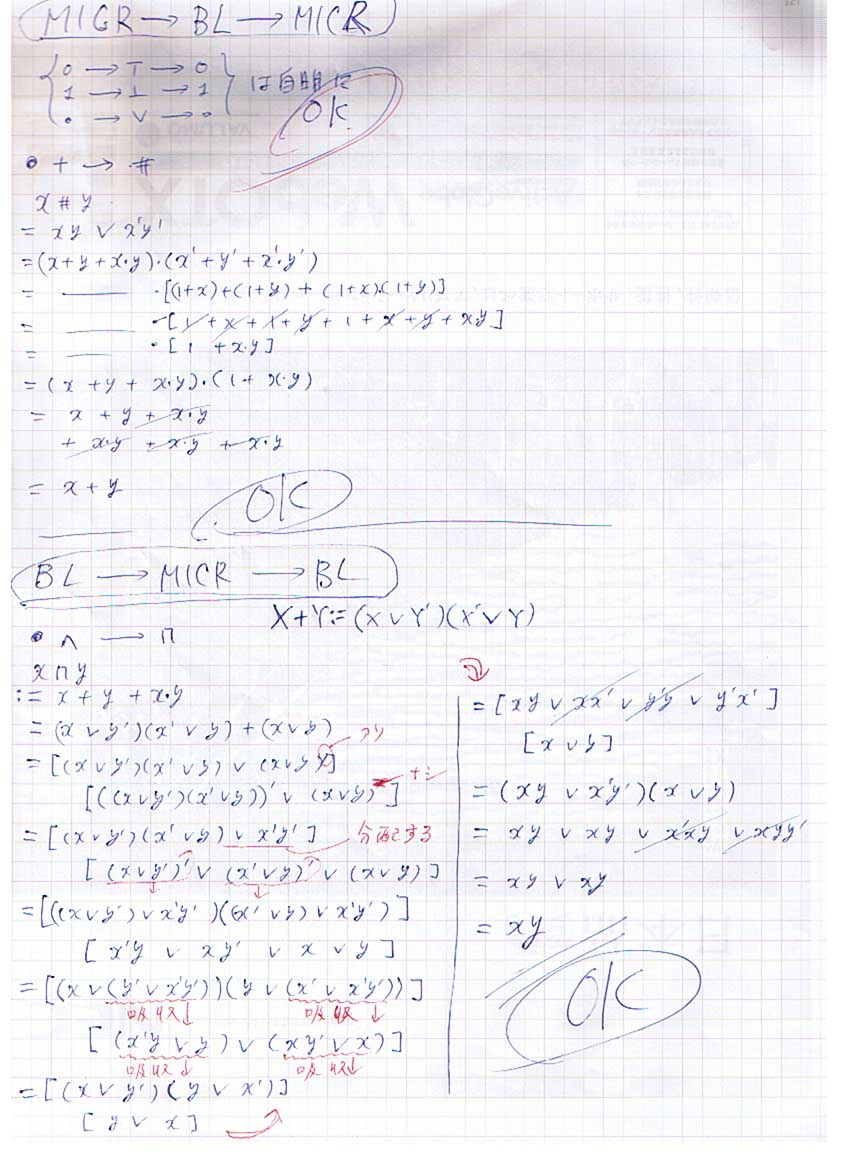 MIGR → BL → MICR
0 → T → 0
1 → ⊥ → 1
• → ∨ → •
は自明に
OK
• + → #
x # y
= xy ∨ x'y'
=(x+y+x•y)•(x'+y'+x'•y')
= ——— •[(1+x)+(1+y)+(1+x)(1+y)]
= ——— •[1+x+1+y+1+x+y+xy]
= ——— •[1 +x•y]
=(x+y+x•y)•(1+x•y)
= x+y+x•y
+x•y+x•y+x•y
= x+y
OK
BL → MICR → BL
X+Y:=(X∨Y')(X'∨Y)
• ∧ → ⊓
x⊓y
:= x+y+x•y
=(x∨y')(x'∨y)+(x∨y)
=[(x∨y')(x'∨y)∨(x∨y)']
[((x∨y')(x'∨y))'∨(x∨y)]
=[(x∨y')(x'∨y)∨x'y'] 分配する
[(x∨y')'∨(x'∨y)'∨(x∨y)]
=[((x∨y')∨x'y')((x'∨y)∨x'y')]
[x'y ∨ xy' ∨ x ∨ y]
=[(x∨(y'∨x'y'))(y∨(x'∨x'y'))]
吸収↓ 吸収↓
[(x'y∨y)∨(xy'∨x)]
吸収↓ 吸収↓
=[(x∨y')(y∨x')]
[y∨x]
=[xy∨xx'∨y'y∨y'x']
[x∨y]
=(xy∨x'y')(x∨y)
= xy∨xy∨x'xy'∨x'yy'
= xy∨xy
= xy
OK